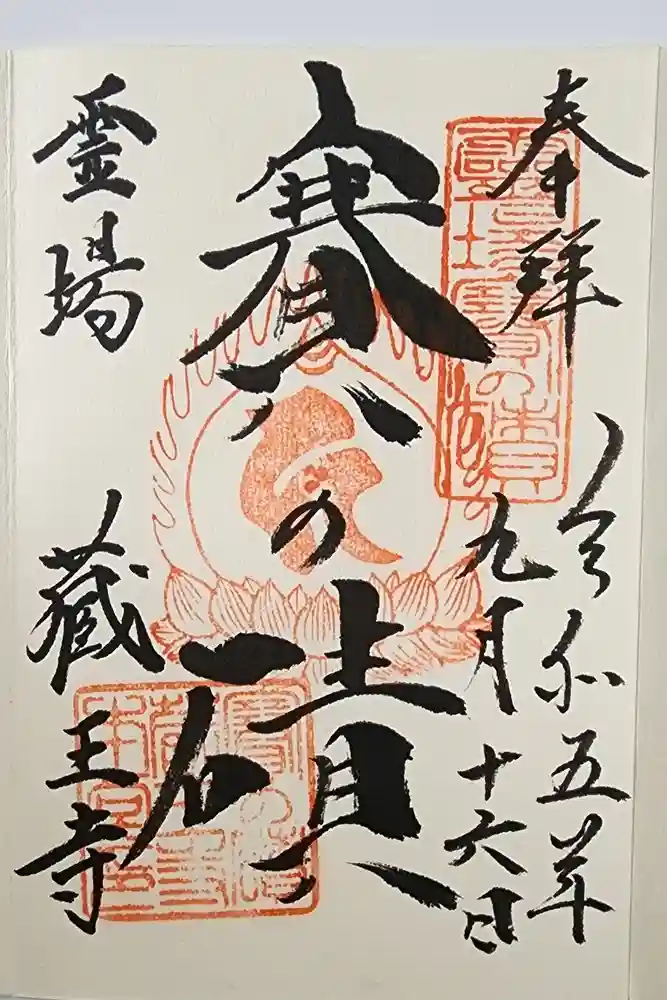 奉拝 令和五年
九月十六日
賽の磧
霊場 蔵王寺